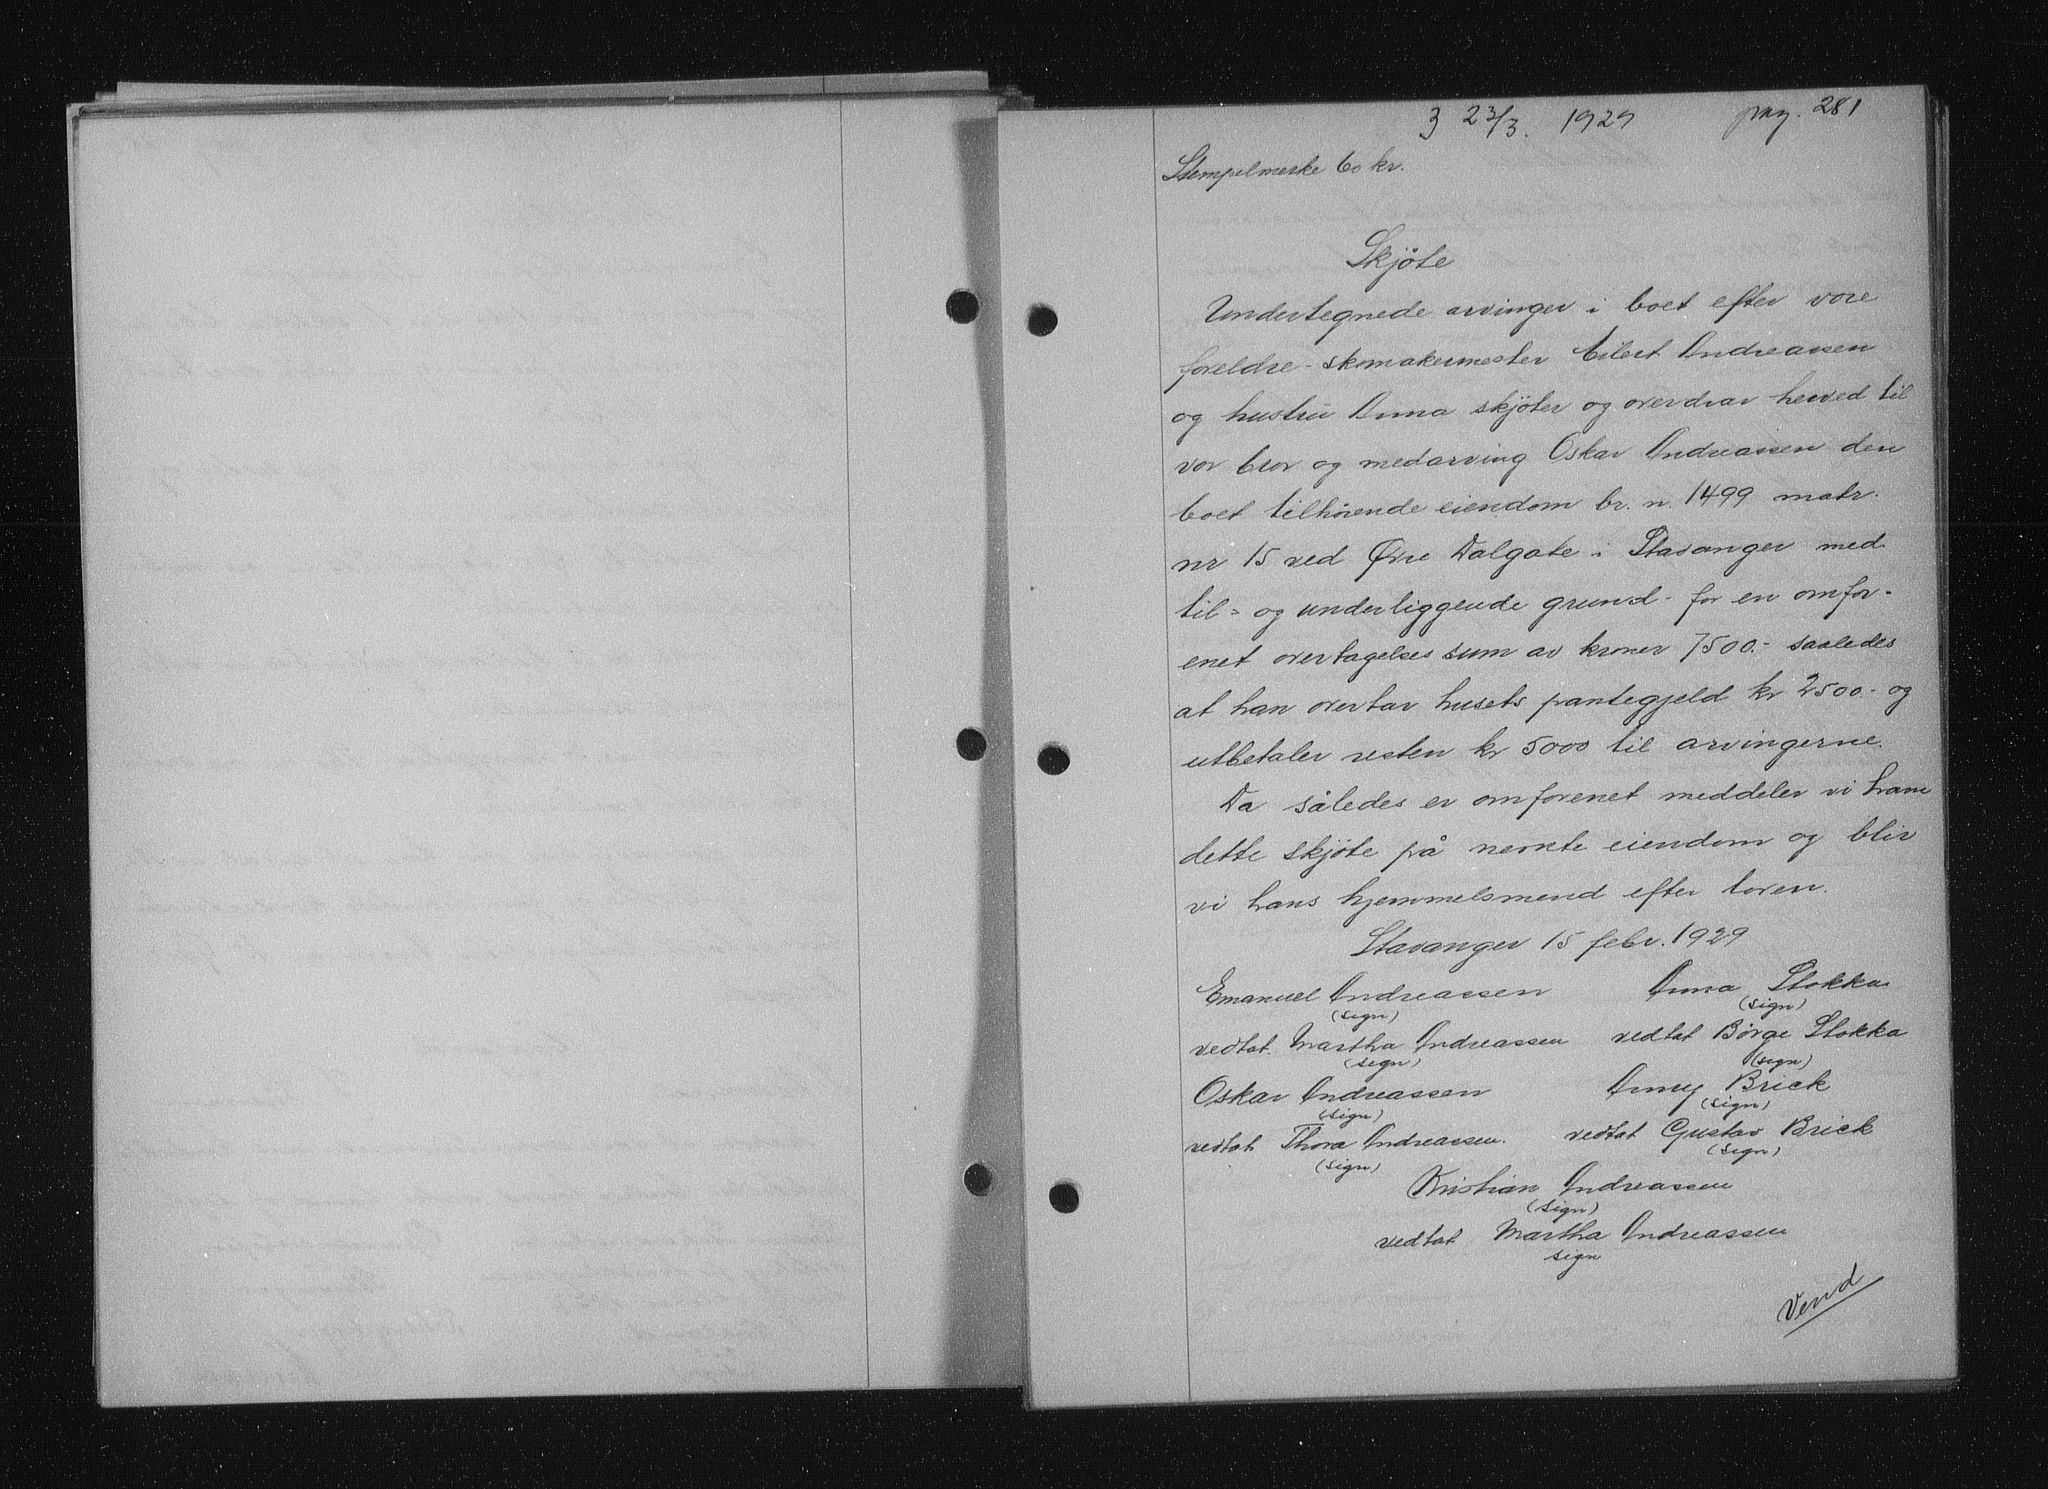 3 23/3. 1929 pag. 281
Stempelmerke 60 kr.
Skjöte
Undertegnede arvinger i boet efter vore
foreldre - skomakermester Eilert Andreassen
og hustru Anna skjöter og overdrar herved til
vor bror og medarving Oskar Andreassen den
boet tilhörende eiendom br. n. 1499 matr.
nr 15 ved Øvre Dalgate i Stavanger med
til- og underliggende grund - for en omfor-
enet overtagelses sum av kroner 7500.- saaledes
at han overtar husets pantegjeld kr 2500.- og
utbetaler resten kr 5000 til arvingerne.
Da således er omforenet meddeler vi ham
dette skjöte på nevnte eiendom og blir
vi hans hjemmelsmend efter loven.
Stavanger 15 febr. 1929
Emanuel Andreassen Anna Stokka
(sign) (sign)
vedtat Martha Andreassen vedtat Børge Stokka
(sign) (sign)
Oskar Andreassen Anny Brick
(sign) (sign)
vedtat Thora Andreassen. vedtat Gustav Brick
(sign) (sign)
Kristian Andreassen
(sign)
vedtat Martha Andreassen
sign
Vend